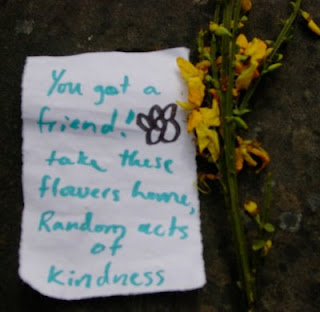 You got a
friend!
take these
flowers home,
Random acts
of
kindness